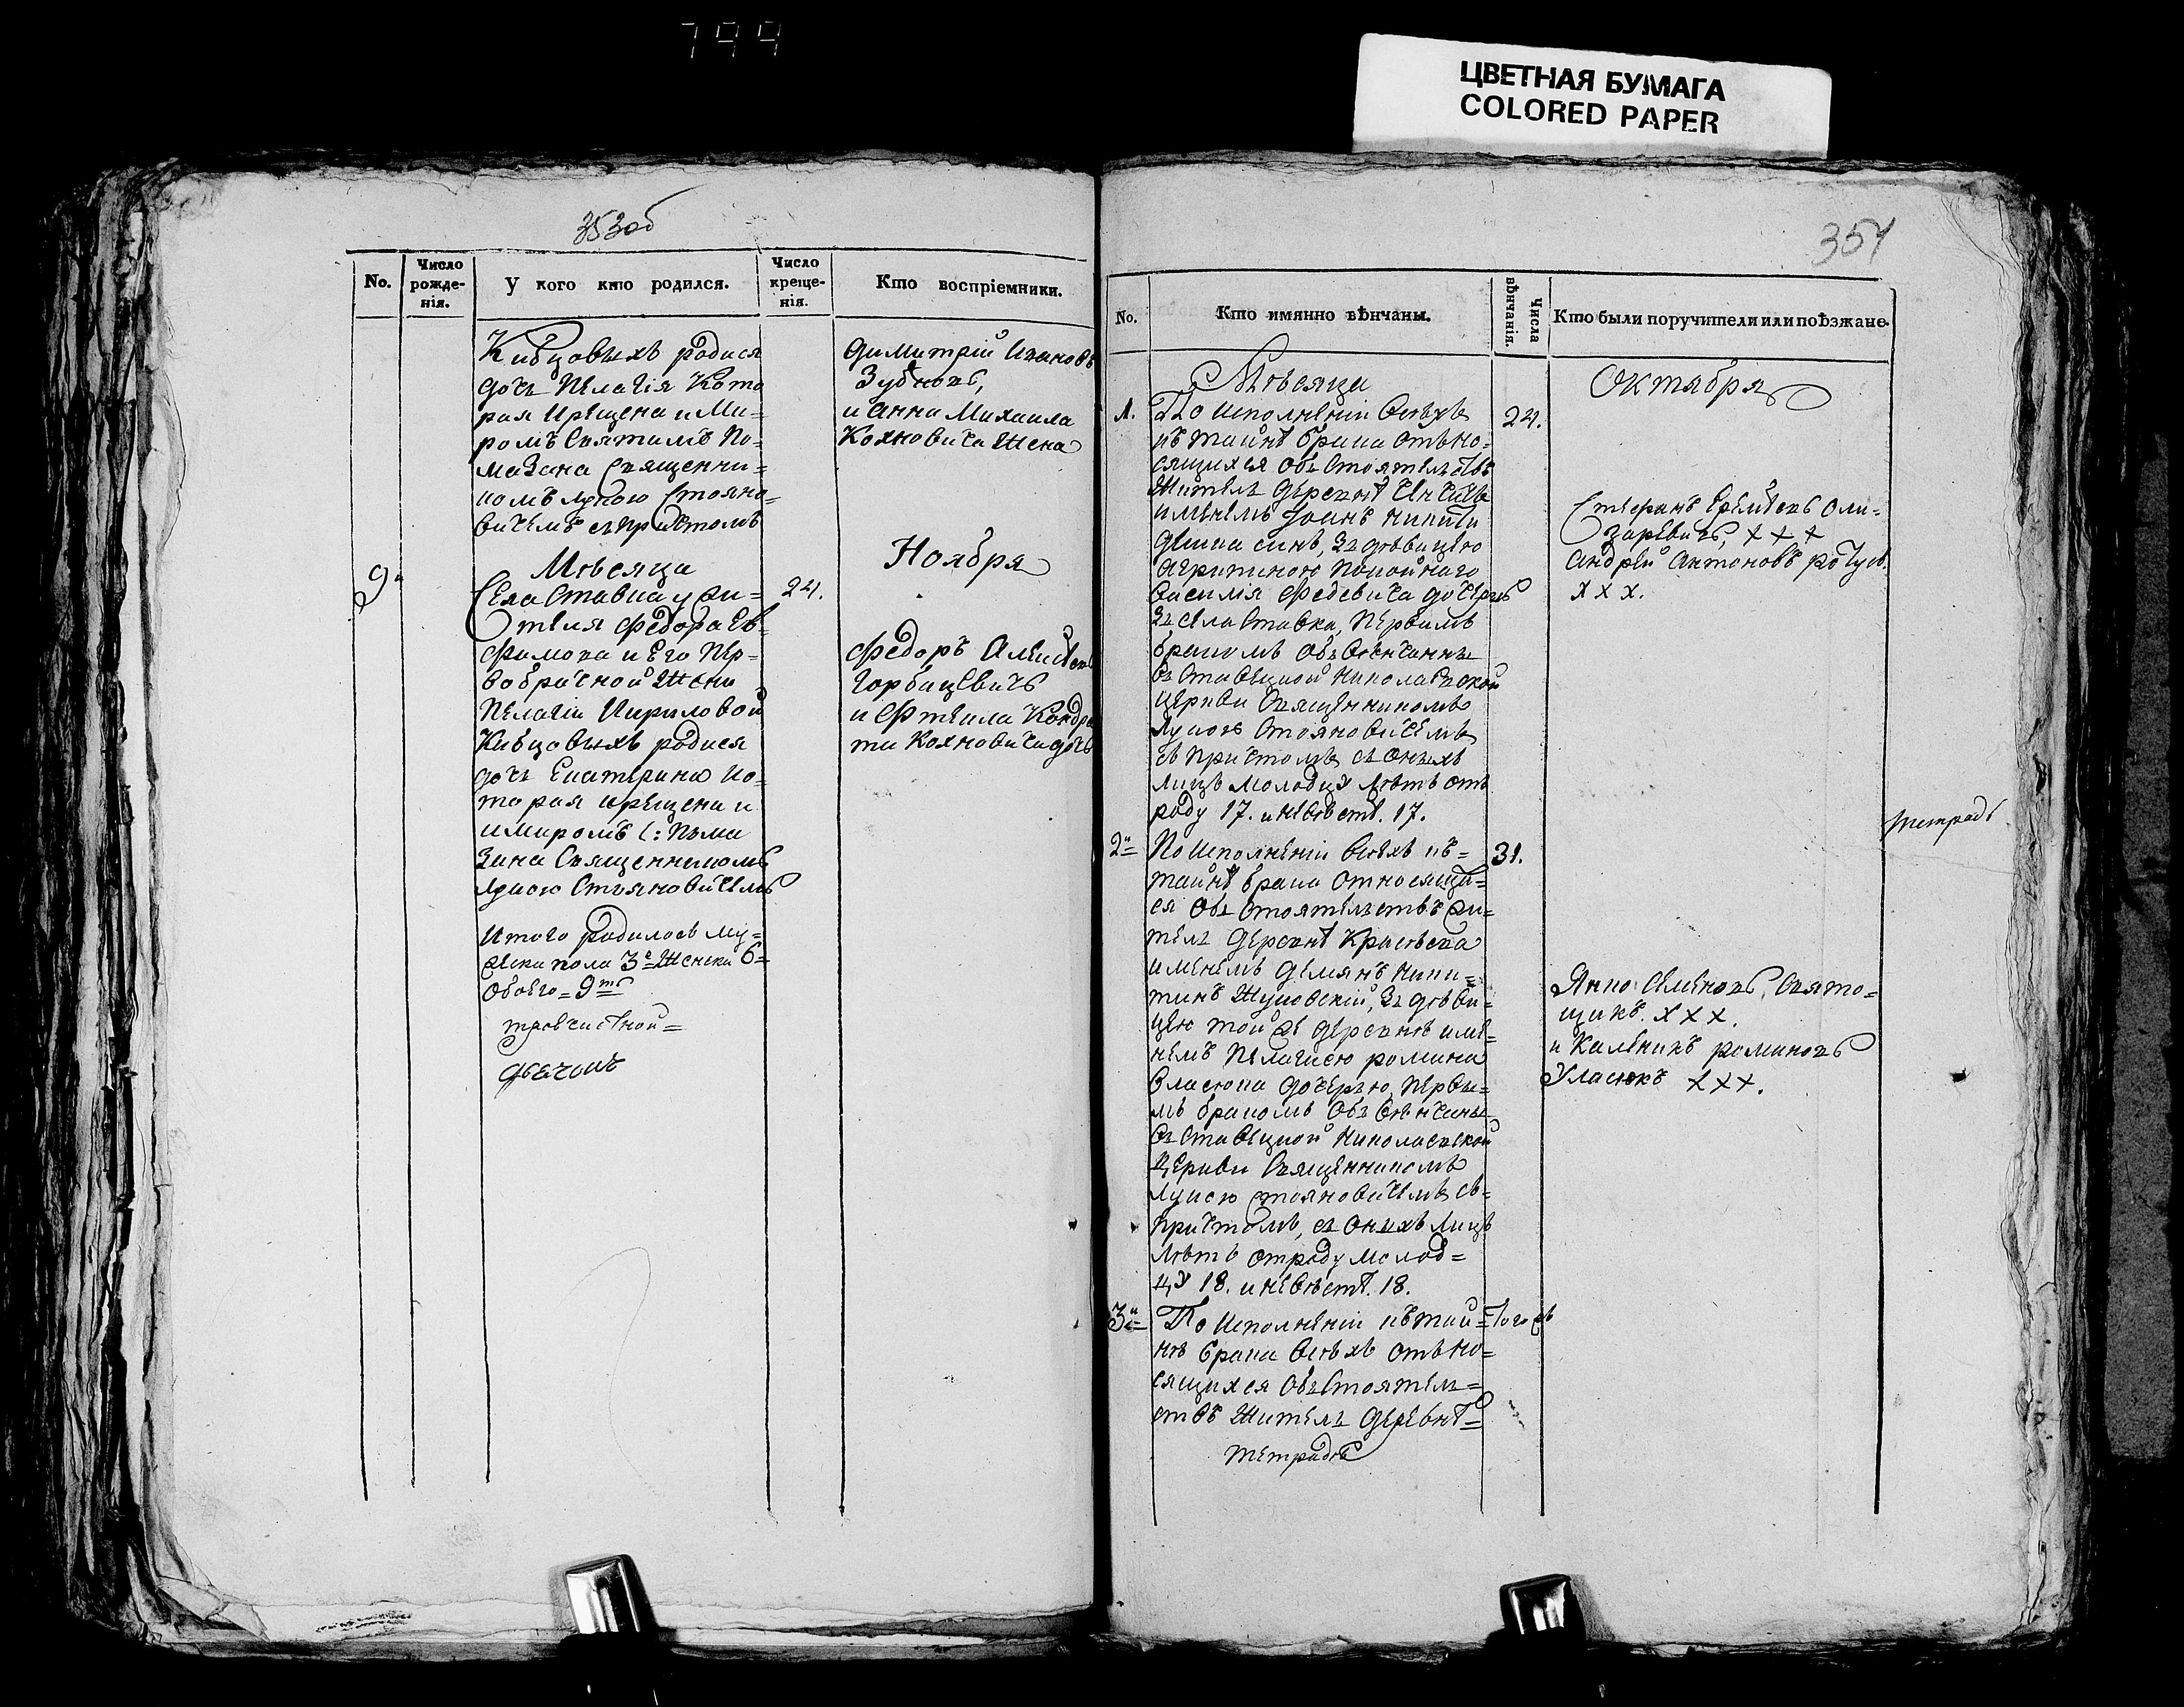 744
ЦВЕТНАЯ БУМАГА
COLORED PAPER
353об
No.
Число рожденія.
У кого кто родился.
Число крещенія.
Кто воспріемники.
Кивцовыхъ родися
дочь Пелагія Кото
рая крещена и Ми=
ромъ Святымъ По=
мазана Священни=
комъ Лукою Стояно=
вичемъ съ причтомъ
Димитрій Ивановъ
Зубковъ,
и Анна Михаила
Кохновича Жена
Мѣсяца
Ноября
9
Села Ставка у жи=
теля Федора Ев=
фимова и Его Пер=
вобрачной Жени
Пелагіи Кириловой
Кивцовыхъ родися
дочь Екатерина ко=
торая крещена и
и миромъ С: Пома
зана Священникомъ
Лукою Стояновичемъ
24.
Федоръ Алексѣевъ
Горбацевичъ
и Фтекла Кондра
ти Кохновича дочь
Итого родилось му=
жеска пола 3 Женска 6=
обоего = 9
354
No.
Кто имянно вѣнчаны.
Числа вѣнчанія.
Кто были поручители или поѣзжане.
Мѣсяца
Октября
1.
По исполненіи Всѣхъ
къ тайнѣ брака отъно=
сящихся обьстоятельствъ
Житель деревнѣ
именемъ Іоанъ Никити
синъ, зъ дѣвицею
Агрипиною покойнаго
Василя Федевича дочерю
зъ села Ставка, Первимъ
бракомъ обьвѣнчанны
въ Ставецкой Николаевской
церкви Священникомъ
Лукою Стояновичемъ
съ причтомъ съ онихъ
лицъ молодцу лѣтъ отъ
роду 17. и невѣстѣ. 17.
24.
Стефанъ Еремѣевъ Оли=
заревичъ, х х х
Андрей Антоновъ
х х х.
2
По исполненіи Всѣхъ къ=
тайнѣ брака относящи=
ся обьстоятельствъ жи=
тель деревнѣ
именемъ Демянъ Ники=
тинъ Жуковскій, зъ дѣви=
цею той же деревнѣ име=
немъ Пелагиею романа
Власюка дочерью, перви=
мъ бракомъ обьвѣнчаны
въ Ставецкой Николаевской
Церкви Священникомъ
Лукою Стояновичемъ съ=
причтомъ, съ онихъ лицъ
лѣтъ отроду молод=
цу 18. и невѣстѣ. 18.
31.
Янко Семеновъ, Свято=
щикъ. х х х.
и Каленикъ романовъ
Уласюкъ х х х.
тетрадь
3
По исполненіи къ тай=
нѣ брака всѣхъ отъно=
сящихся обьстоятель=
ствъ Житель деревнѣ=
тетрадь